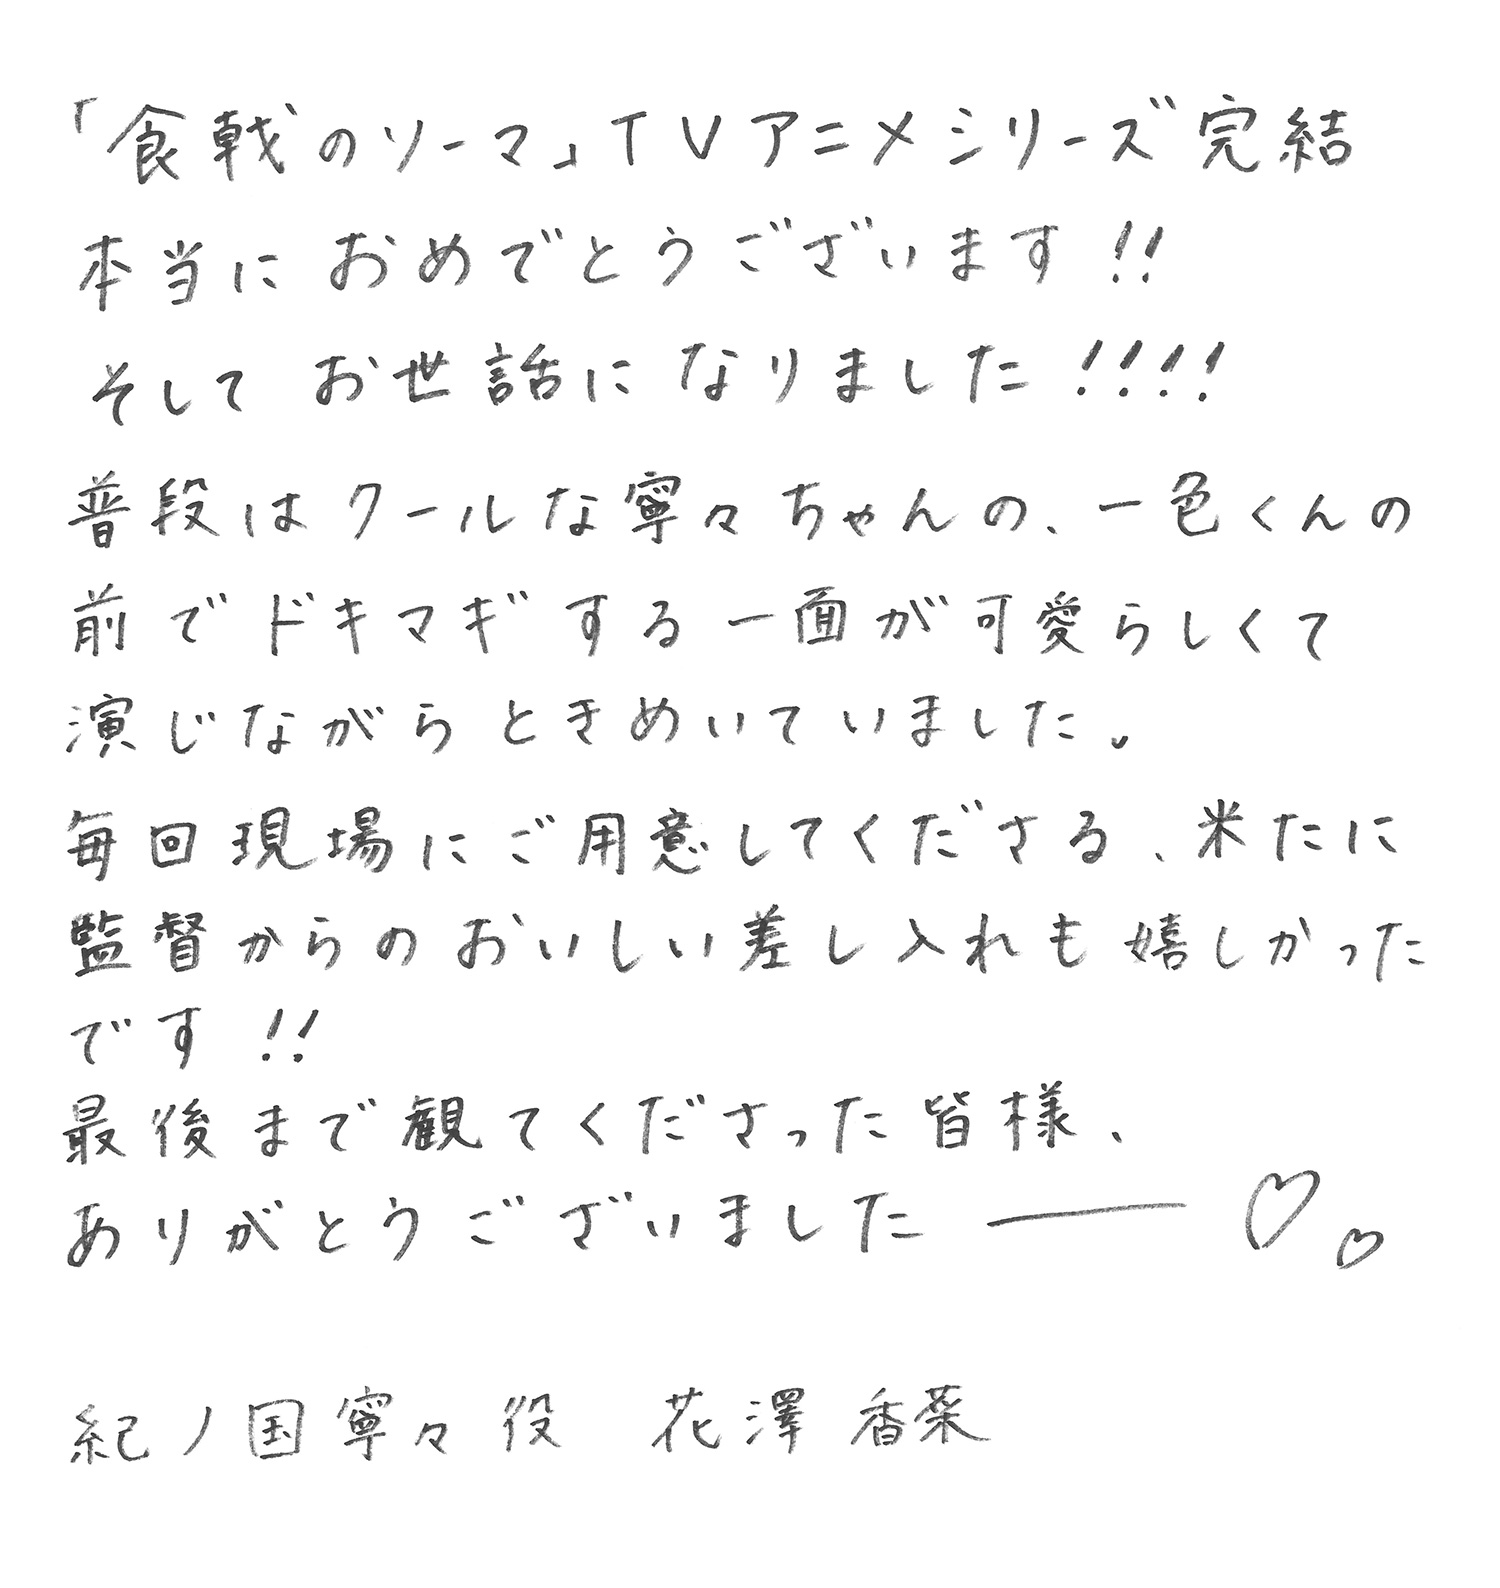 「食戟のソーマ」TVアニメシリーズ完結
本当におめでとうございます!!
そしてお世話になりました!!!!
普段はクールな寧々ちゃんの、一色くんの
前でドキマギする一面が可愛らしくて
演じながらときめいていました。
毎回現場にご用意してくださる、米たに
監督からのおいしい差し入れも嬉しかった
です!!
最後まで観てくださった皆様、
ありがとうございましたー♡♡
紀ノ国寧々役 花澤香菜